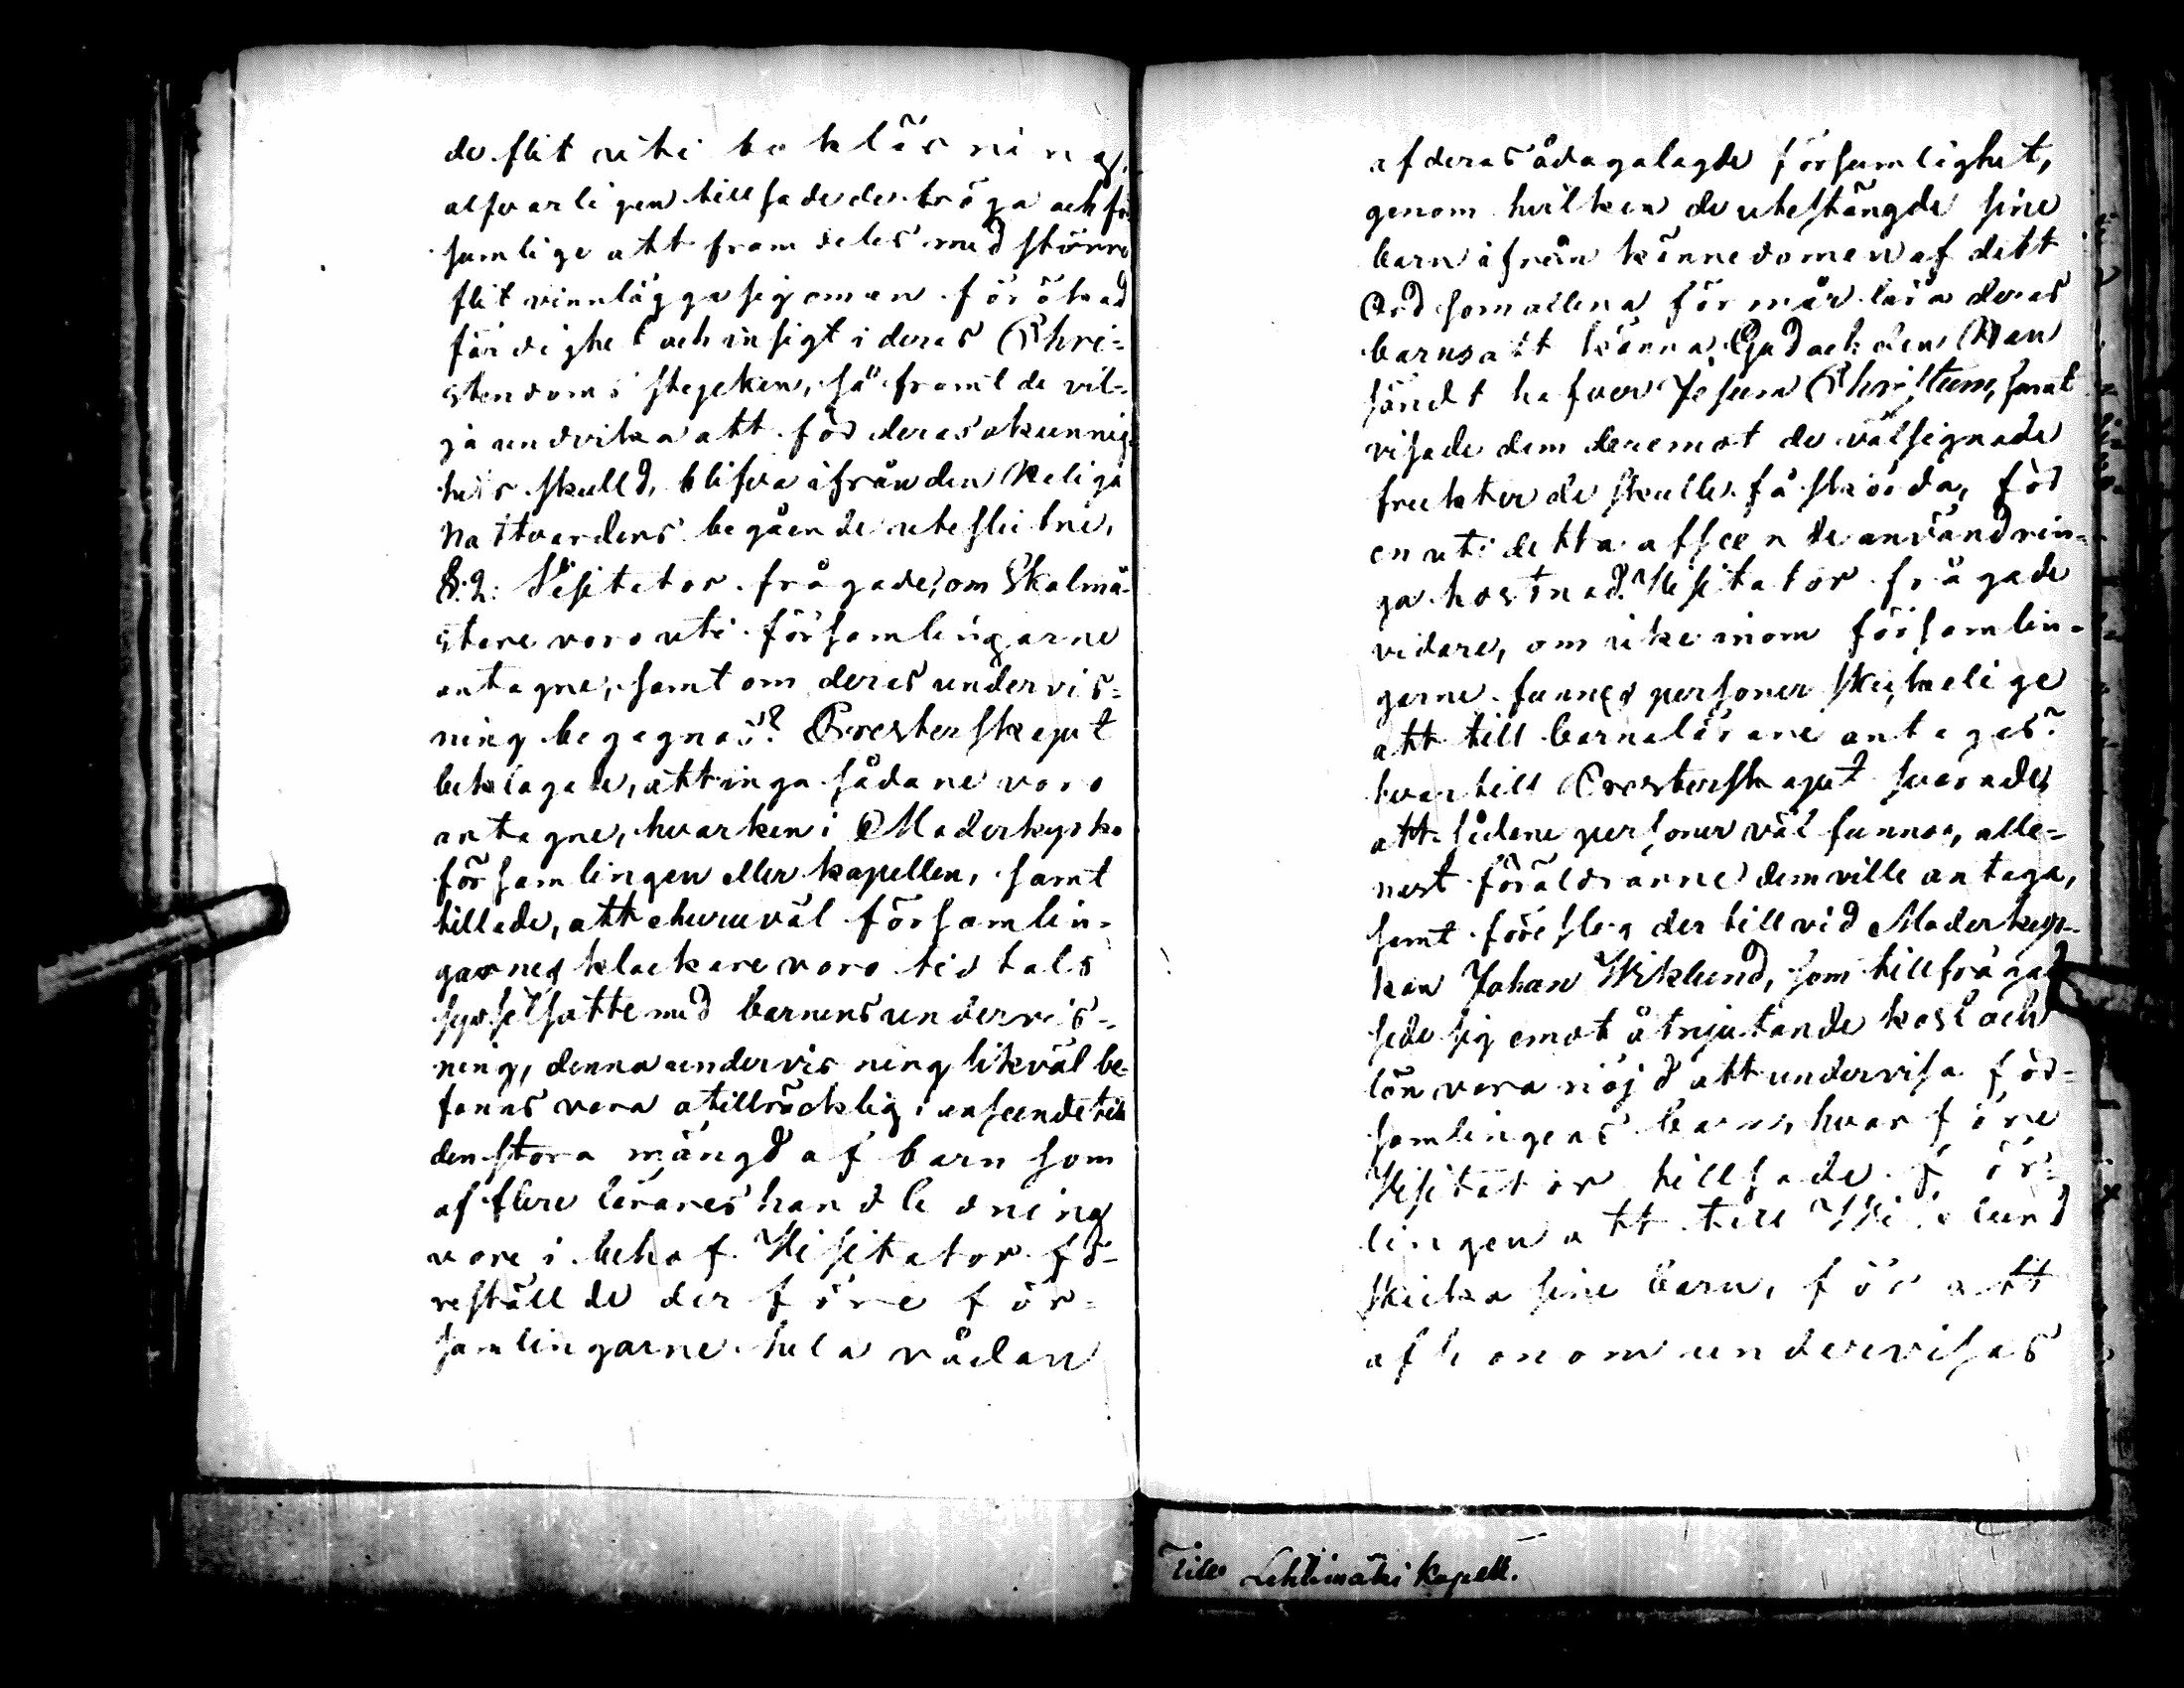 de flit uti bokläsning,
alfvarligen tillsade de tröga och för
sumlige att framdeles med större
flit vinnlägga sig om en förökad
färdighet och insigt i deras Chri-
stendoms stycken, så framt de vil-
ja undvika att för deras okunnig-
hets skulld, blifva ifrån den Heliga
Nattvardens begående uteslutne,
§.2: Visitator frågade, om Skolmä-
stare voro uti församlingarne
antagne, samt om deras undervis-
ning begagnas? Presterskapet
beklagade, att inga sådane voro
antagne, hvarken i Moderkyrko
församlingen eller kapellen, samt
tillade, att ehuruväl församlin-
garnes klockare voro tidtals
sysselsatte med barnens undervis-
ning, denna undervisning likväl be-
fanns vara otillräcklig i anseende till
den stora mängd af barn som
af flere lärares handledning
vore i behof. Visitator fö-
reställde der före för-
samlingarne hela vådan
af deras ådagalagde försumlighet,
genom hvilken de utestängde sine
barn ifrån kännedomen af dett
Ord som allena förmår lära deras
barns att känna Gud och den Han
sändt hafver Jesum Christum, samt
visade dem deremot de välsignade
frukter de skulle få skörda, för
en uti detta afseende använd rin-
ga kostnad. Visitator frågade
vidare, om icke inom församlin-
garne funnes personer skickelige
att till barnalärare antagas?
hvartill Presterskapet svarade,
att sådane personer väl funnos, alle-
nast föräldrarne dem ville antaga,
samt föreslog der till vid Moderkyr-
kan Johan Wiklund, som tillfrågad
sade sig emot åtnjutande kost och
lön vara nöjd att undervisa för-
samlingens barn, hvarföre
Visitator tillsade för-
lingen att till Wiklund
skicka sine barn, för att
af honom undervisas
Till Lehtimäki Kapell.